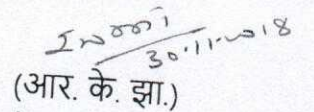 30.11.2018
(आर. के. झा.)